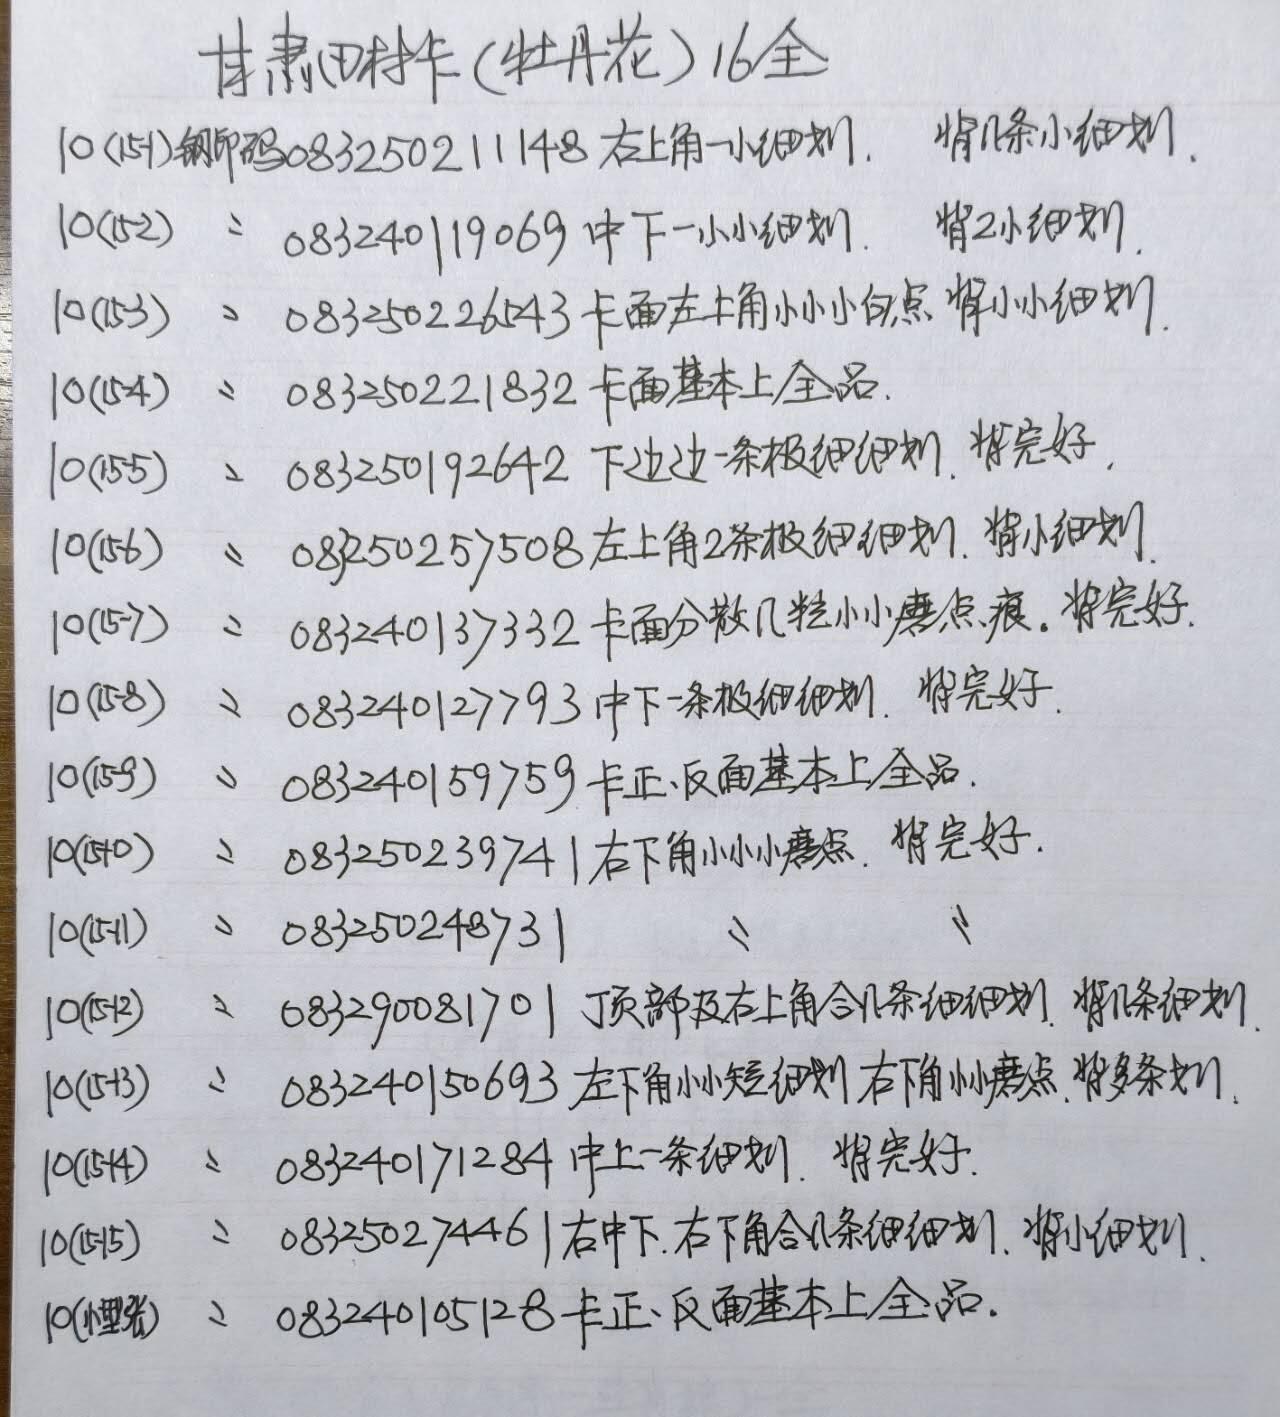 甘肃田村卡(牡丹花)16全
10(15-1)钢印码083250211148右上角一小细划. 背几条小细划.
10(15-2) 〃 083240119069中下一小小细划. 背2小细划.
10(15-3) 〃 083250226543卡面左上角小小小白点 背小小细划.
10(15-4) 〃 083250221832卡面基本上全品.
10(15-5) 〃 083250192642下边边一条极细细划. 背完好.
10(15-6) 〃 083250257508左上角2条极细细划. 背小细划.
10(15-7) 〃 083240137332卡面分散几粒小小磨点痕. 背完好.
10(15-8) 〃 083240127793中下一条极细细划. 背完好.
10(15-9) 〃 083240159759卡正、反面基本上全品.
10(15-10) 〃 083250239741右下角小小小磨点. 背完好.
10(15-11) 〃 083250248731 〃 〃
10(15-12) 〃 083290081701 顶部及右上角合几条细细划. 背几条细划.
10(15-13) 〃 083240150693左下角小小短细划 右下角小小磨点. 背多条划.
10(15-14) 〃 083240171284中上一条细划. 背完好.
10(15-15) 〃 083250274461右中下.右下角合几条细细划. 背小细划.
10(小型张) 〃 083240105128卡正、反面基本上全品.